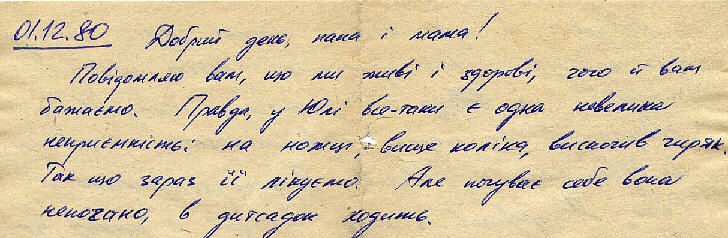 01.12.80 Добрий день, папа і мама!
Повідомляю вам, що ми живі і здорові, чого й вам
бажаємо. Правда, у Юлі все-таки є одна невелика
неприємність: на ножці, вище коліна, вискочив чиряк.
Так що зараз її лікуємо. Але почуває себе вона
непогано, в дитсадок ходить.